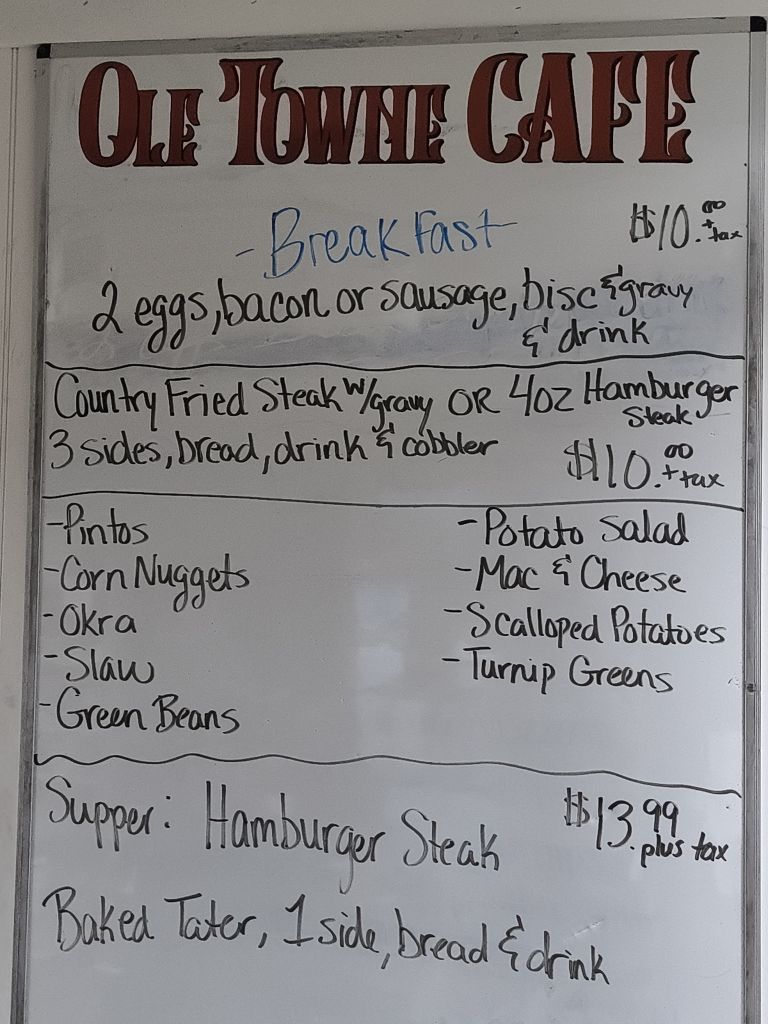 OLE TOWNE CAFE
-Breakfast $10.00 + tax
2 eggs, bacon or sausage, bisc & gravy
& drink
Country Fried Steak w/gravy OR 4oz Hamburger Steak
3 sides, bread, drink & cobbler $10.00 + tax
-Pintos
-Corn Nuggets
-Okra
-Slaw
-Green Beans
-Potato Salad
-Mac & Cheese
-Scalloped Potatoes
-Turnip Greens
Supper: Hamburger Steak $13.99 plus tax
Baked Tater, 1 side, bread & drink